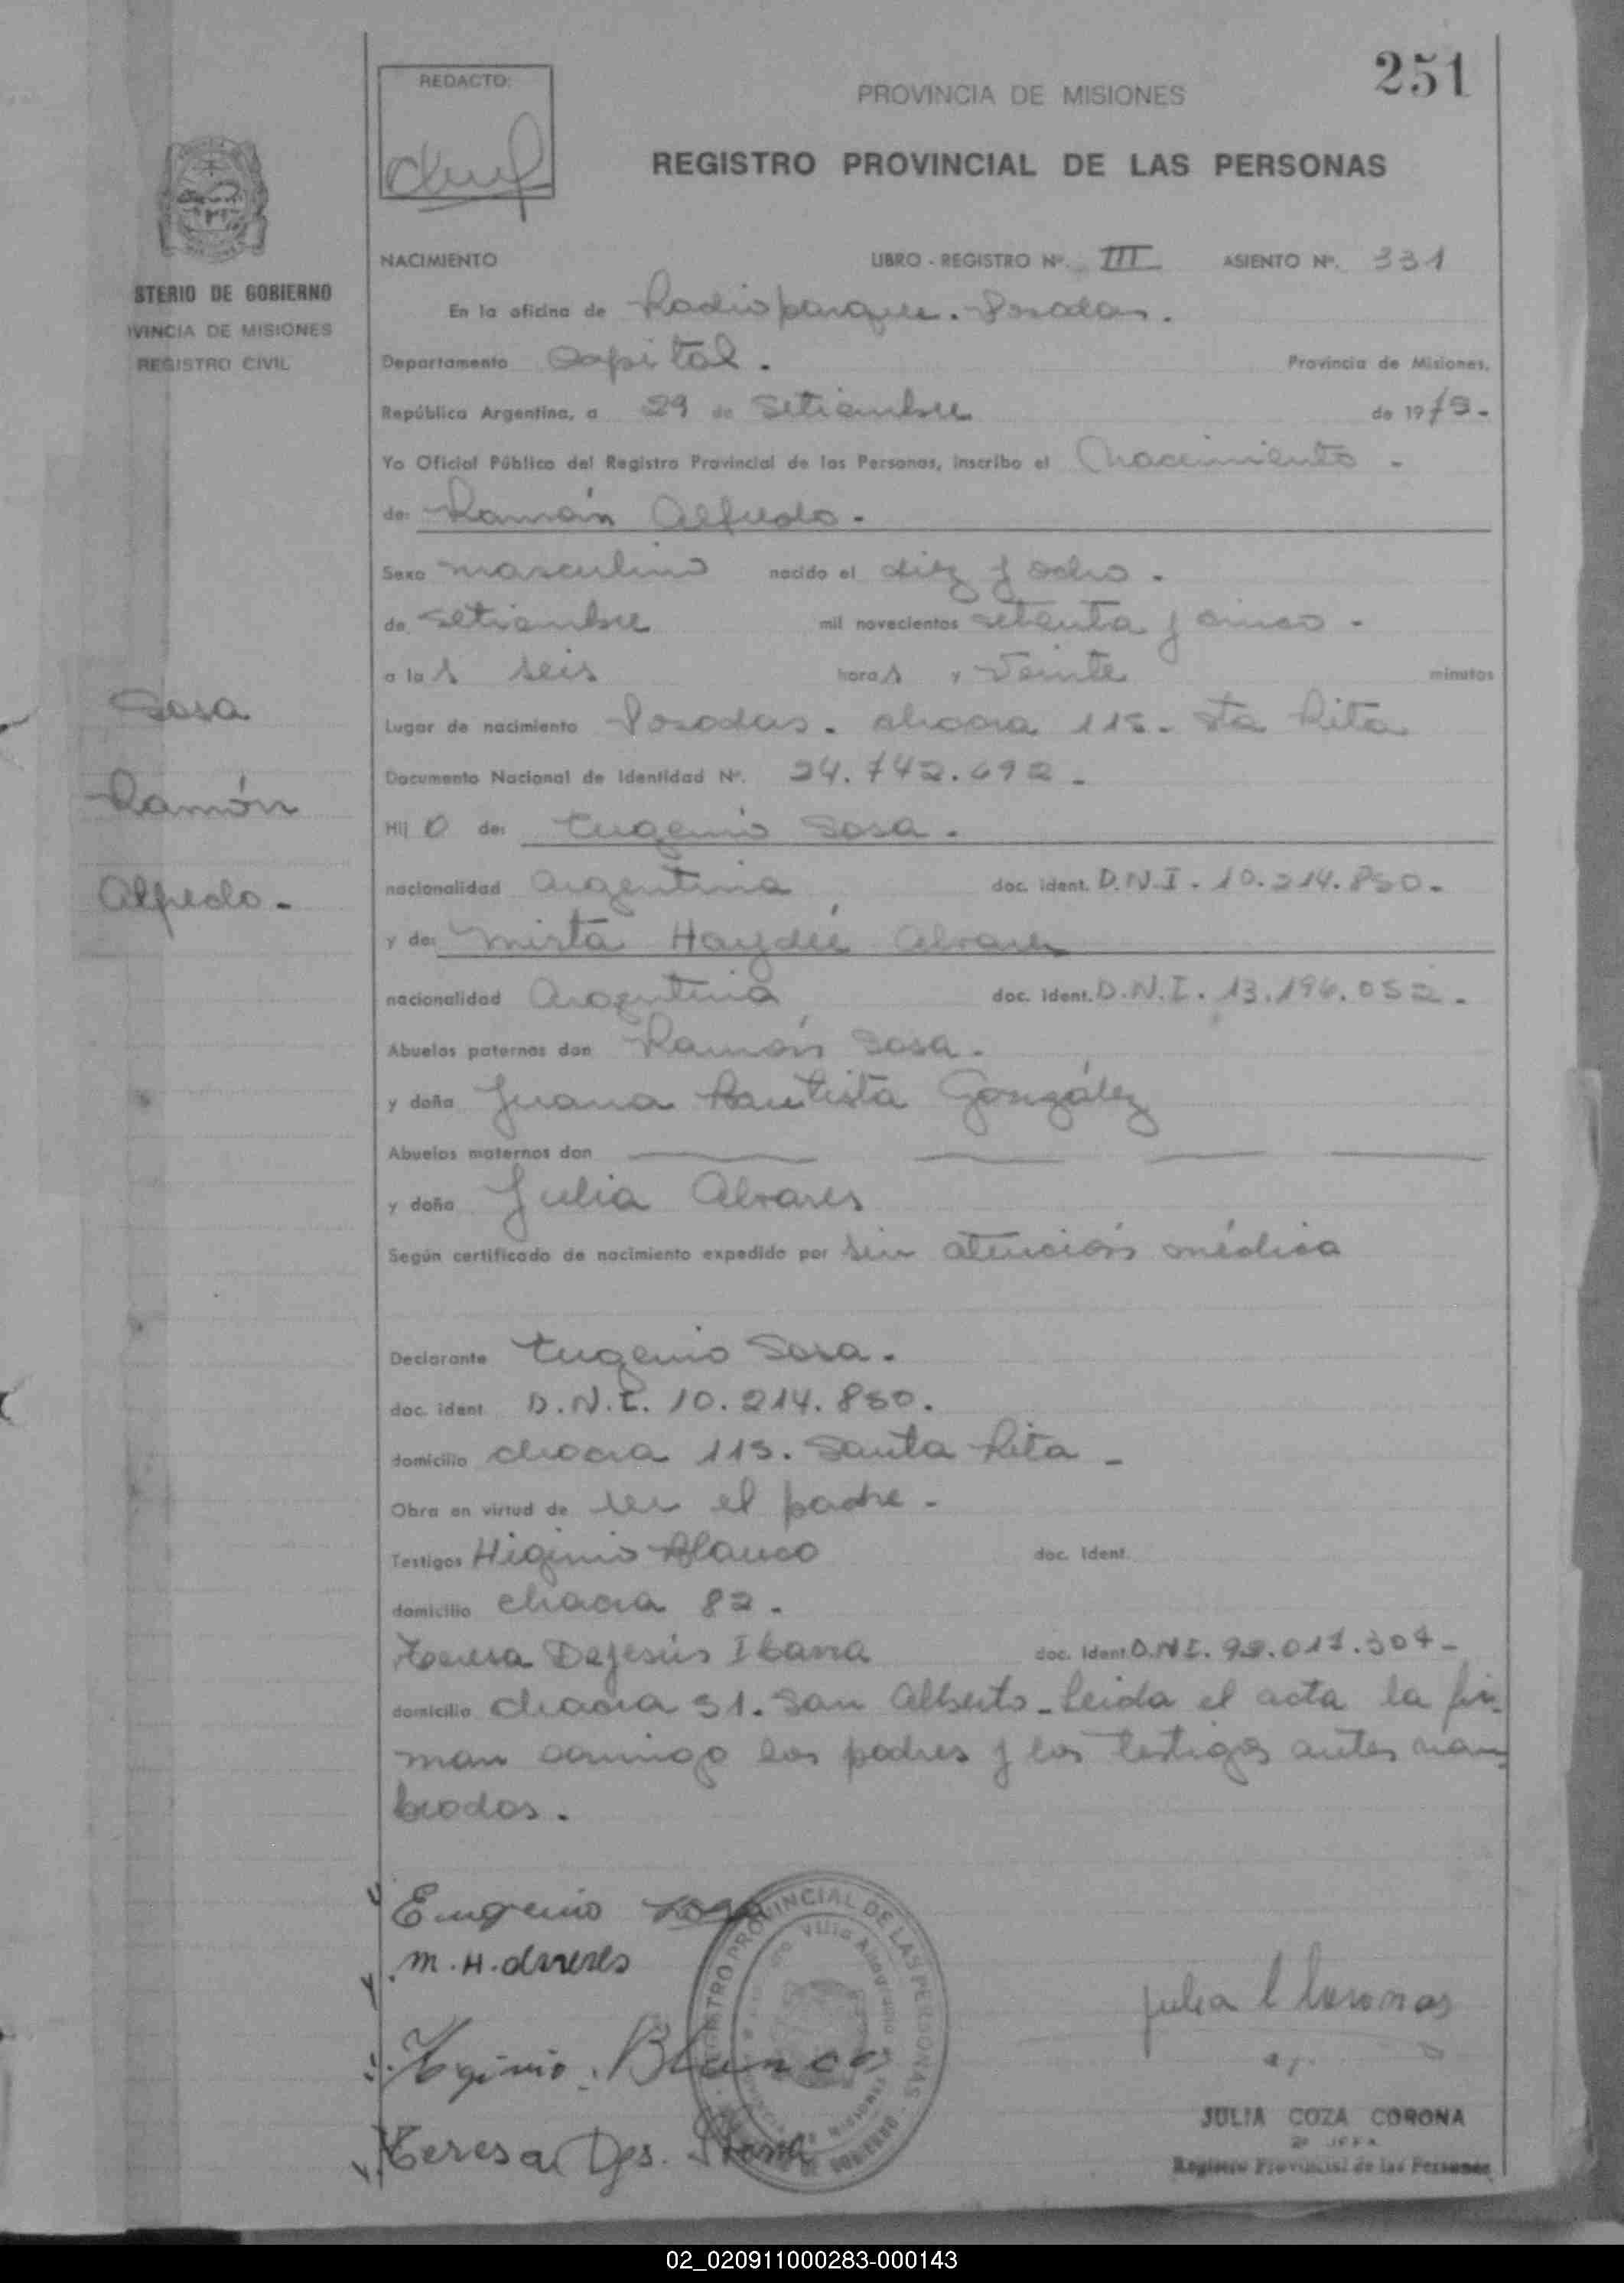 251
REDACTO:
PROVINCIA DE MISIONES
REGISTRO PROVINCIAL DE LAS PERSONAS
STERIO DE GOBIERNO
VINCIA DE MISIONES
REGISTRO CIVIL
NACIMIENTO LIBRO - REGISTRO Nº. III ASIENTO Nº. 331
En la oficina de Radioparque. Posadas.
Departamento Capital. Provincia de Misiones,
República Argentina, a 29 de Setiembre de 1975.-
Yo Oficial Público del Registro Provincial de las Personas, inscribo el Nacimiento -
de: Ramón Alfredo.-
Sexo masculino nacido el diez y ocho.
de setiembre mil novecientos setenta y cinco.
a las seis horas y veinte minutos
Lugar de nacimiento Posadas. chacra 115. Sta Rita
Documento Nacional de Identidad Nº. 24.742.692.-
Hijo de: Eugenio Sosa.
nacionalidad Argentina doc. ident. D.N.I. 10.214.850.-
y de: Mirta Haydée Alvarez
nacionalidad Argentina doc. ident. D.N.I. 13.196.052.-
Abuelos paternos don Ramón Sosa.
y doña Juana Bautista González
Abuelos maternos don
y doña Julia Alvares
Según certificado de nacimiento expedido por sin atención médica
Declarante Eugenio Sosa.
doc. ident. D.N.I. 10.214.850.
domicilio chacra 115. Santa Rita -
Obra en virtud de ser el padre.
Testigos Higinio Blanco doc. ident.
domicilio chacra 82.
Teresa DeJesús Ibarra doc. ident D.N.I. 92.017.307-
domicilio chacra 51. San Alberto - Leida el acta la fir-
man conmigo los padres y los testigos antes nom-
brados.
Sosa
Ramón
Alfredo.-
Eugenio Sosa
M.H. Alvares
Iginio Blanco
Teresa Djs. Ibarra
REGISTRO PROVINCIAL DE LAS PERSONAS
JULIA COZA CORONA
Registro Provincial de las Personas
02_020911000283-000143